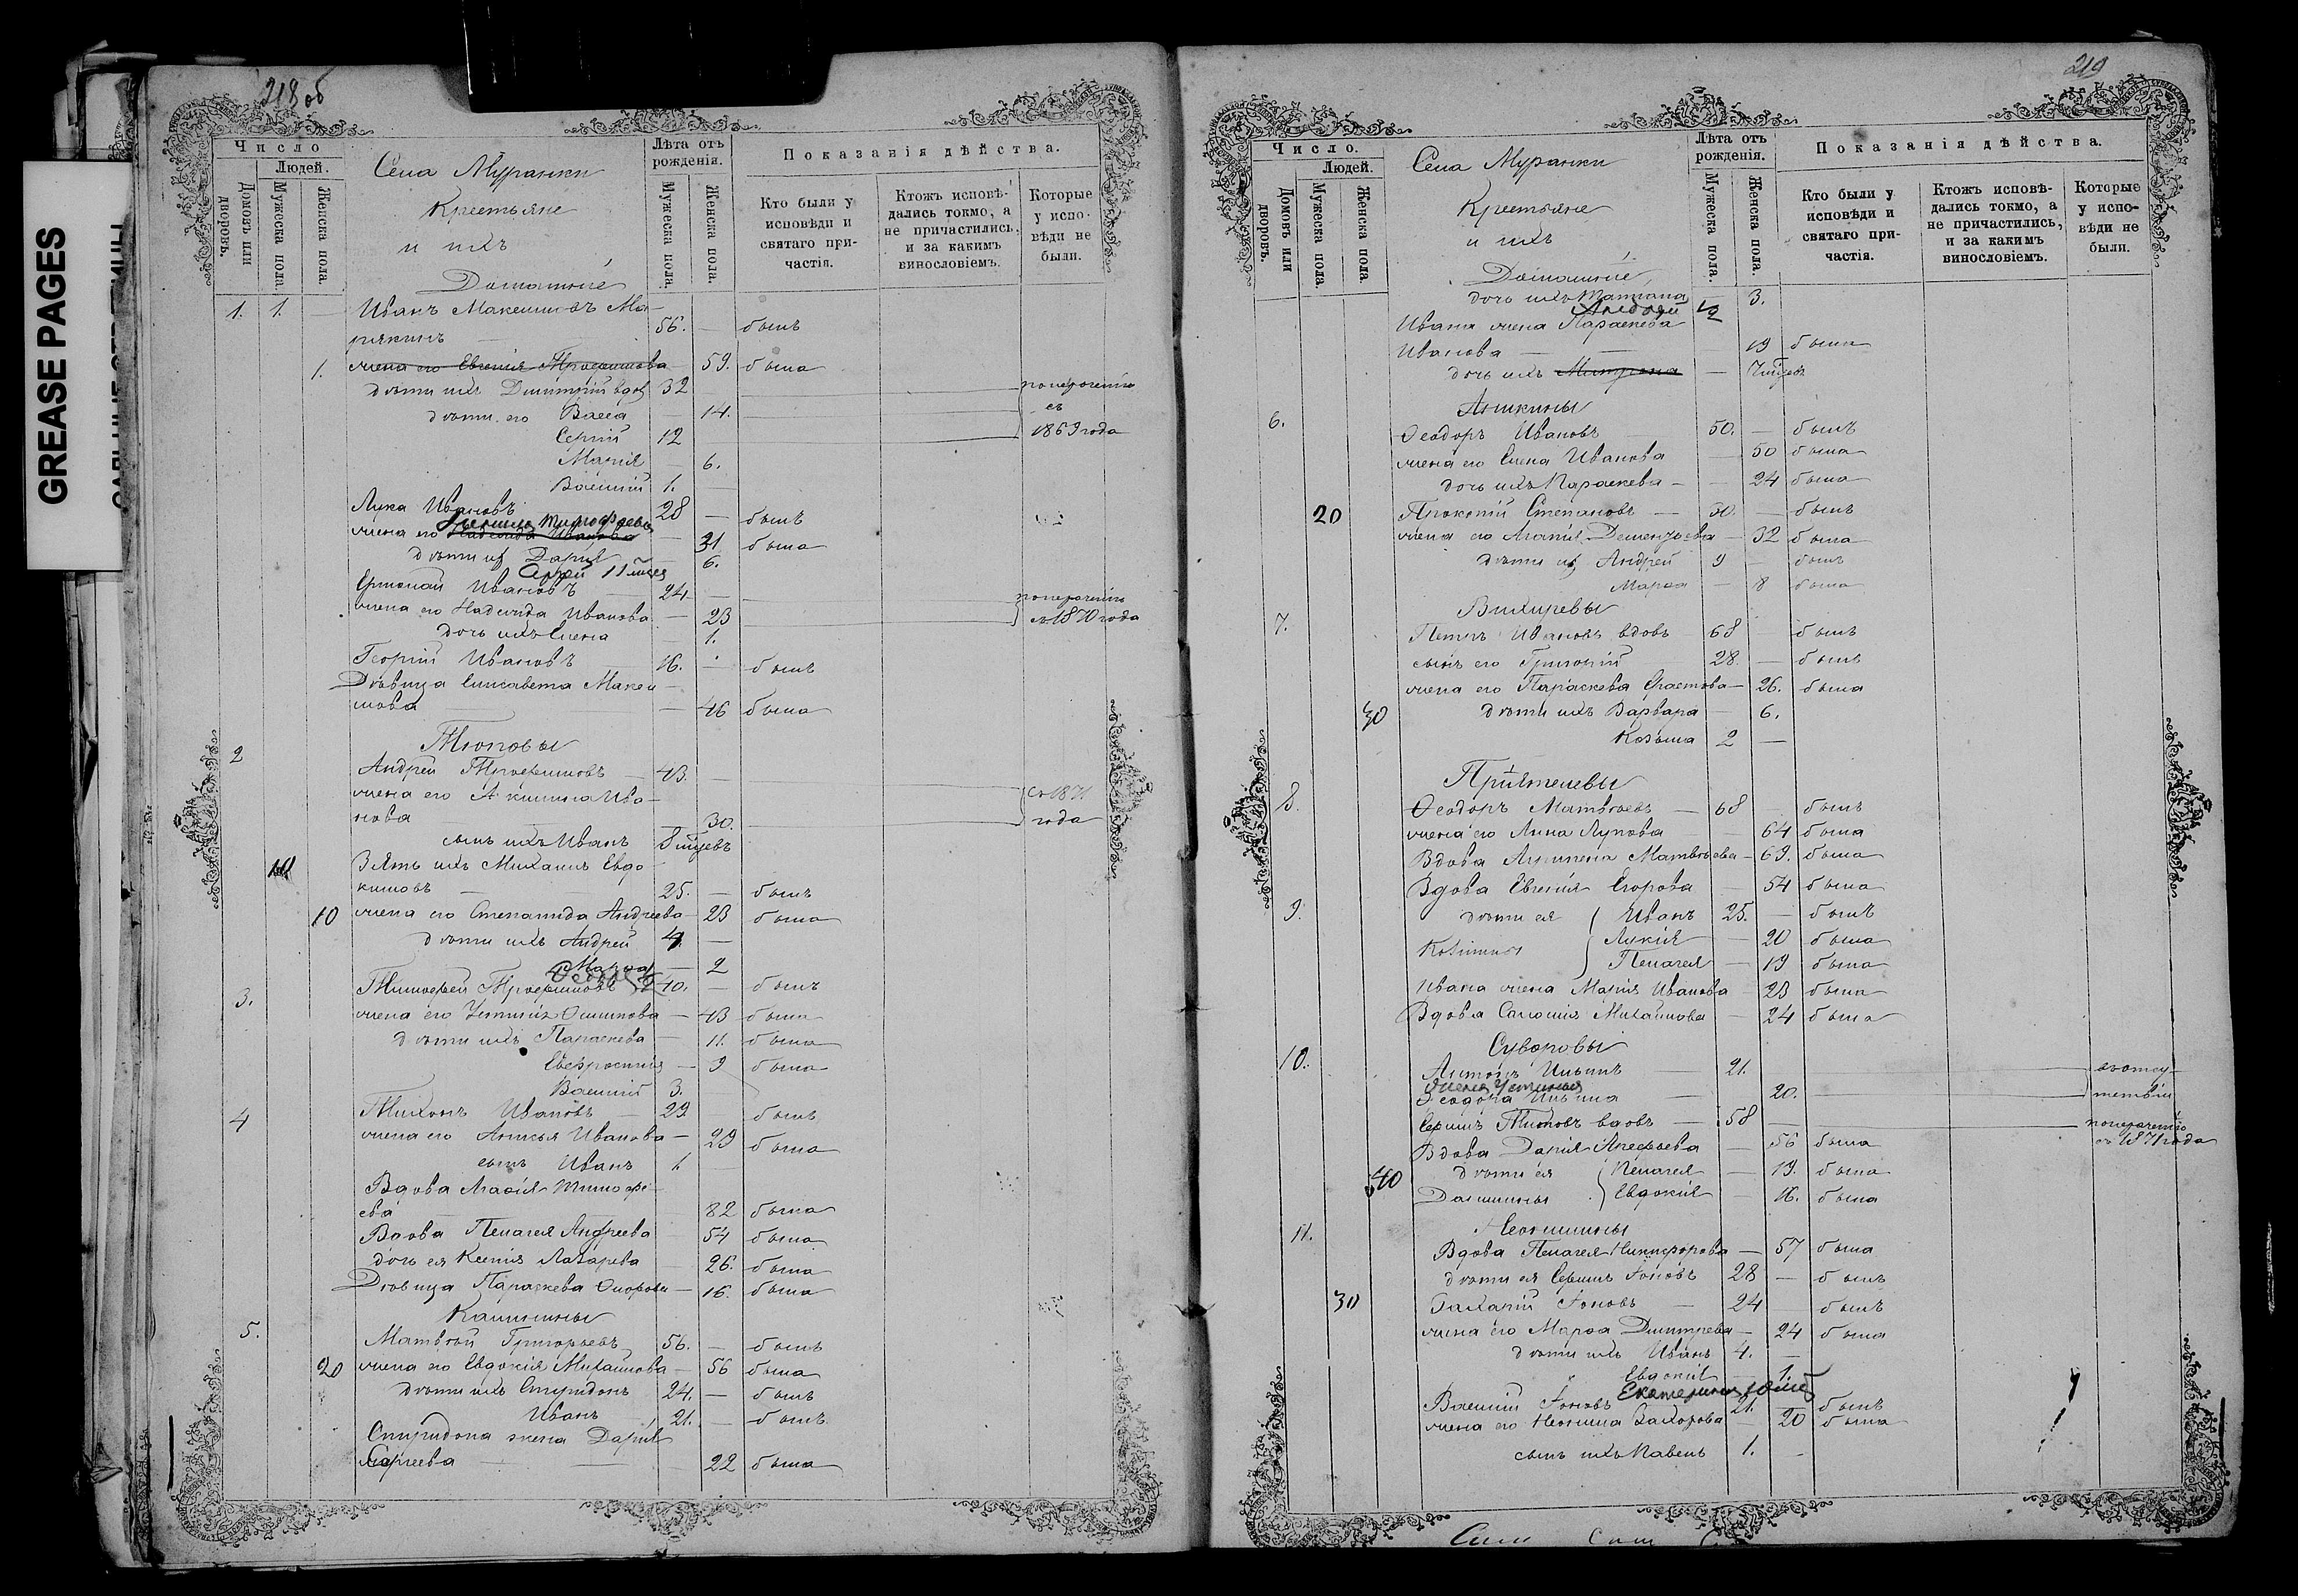 GREASE PAGES
218 об
Число
Людей.
Домовъ или дворовъ.
Мужеска пола.
Женска пола.
Села Муранки
Крестьяне
и ихъ
Домашніе
Лѣта отъ рожденія.
Мужеска пола.
Женска пола.
Показанія дѣйства.
Кто были у исповѣди и святаго причастія.
Ктожъ исповѣдались токмо, а не причастились, и за какимъ винословіемъ.
Которые у исповѣди не были.
1. 1. Иванъ Максимовъ
56. — былъ
1. жена его Евгенія Трофимова 59. была
дѣти ихъ Димитрій вдов 32
дѣти его Васса — 14.
съ
Сергій 12
1869 года
Марія — 6.
Василій 1. —
Лука Ивановъ 28 — былъ
Тимофеева
жена его Надежда Иванова — 31 была
дѣти их Дарія 6.
Сергей 11 месец
Ермолай Ивановъ 24 —
жена его Надежда Иванова — 23
съ 1870 года
дочь ихъ Елена — 1.
Георгій Ивановъ 16. — былъ
Дѣвица Елисавета Макси
мова — 46 была
Тюповы
2 Андрей Трофимовъ — 43. —
жена его Акилина Ива—
съ 1871
нова 30.
года
сынъ ихъ Иванъ 8 мѣцевъ
10 Зять ихъ Михаилъ Евдо
кимовъ — 25. — былъ
10 жена его Степанида Андреева — 23 была
дѣти ихъ Андрей 4. —
Марѳа — 2
3. Тимофей Трофимовъ 40. — былъ
жена его Устинія Осипова — 43 была
дѣти ихъ Параскева — 11. была
Евфросинія — 9 была
Василій 3.
4 Тихонъ Ивановъ — 29. былъ
жена его Анисья Иванова — 29 была
сынъ Иванъ 1.
Вдова Агафія Тимофе—
ева — 82 была
Вдова Пелагея Андреева 54 была
дочь ея Ксенія Лазарева 26. была
Дѣвица Параскева — 16. была
Калинины
5. Матвѣй Григорьевъ 56. — былъ
20 жена его Евдокія Михайлова — 56 была
дѣти ихъ Спиридонъ 24. — былъ
Иванъ 21. — былъ
Спиридона жена Дарія
Сергеева — 22 была
219
Число.
Людей.
Домовъ или дворовъ.
Мужеска пола.
Женска пола.
Села Муранки
Крестьяне
и ихъ
Домашніе
Лѣта отъ рожденія.
Мужеска пола.
Женска пола.
Показанія дѣйства.
Кто были у исповѣди и святаго причастія.
Ктожъ исповѣдались токмо, а не причастились, и за какимъ винословіемъ.
Которые у исповѣди не были.
дочь ихъ Татіана — 3.
Ивана жена Параскева
Иванова — 19 была
дочь ихъ Митрона — 7 мѣцевъ
Аникины
6. Ѳеодоръ Ивановъ 50. — былъ
жена его Елена Иванова — 50 была
дочь ихъ Параскева — 24 была
20 Прокопій Степановъ — 30. — былъ
жена его Агапія Дементьева — 32 была
дѣти их Андрей 9 — былъ
Марѳа — 8 была
Вихиревы
7. Петръ Ивановъ вдовъ 68 — былъ
сынъ его Григорій 28. — былъ
жена его Параскева Ерастова — 26. была
30 дѣти ихъ Варвара — 6.
Козьма 2 —
Пріятелевы
8. Ѳеодоръ Матвѣевъ — 68 — былъ
жена его Анна Лупова — 64 была
Вдова Агрипена Матвѣева — 69. была
Вдова Евгенія Егорова — 54 была
9. дѣти ея Иванъ 25. — былъ
Лукія — 20 была
Пелагея — 19 была
Ивана жена Марія Иванова — 23 была
Вдова Саломія Михайлова — 24 была
Суворовы
10. Антонъ Ильинъ — 21.
жена Устинья
Ѳеодора Ильина — 20.
Сергій Титовъ вдовъ — 58
съ 1871 года
Вдова Дарія Арефьева — 56 была
40 дѣти ея Пелагея — 19. была
Евдокія — 16. была
11. Вдова Пелагея Никифорова — 57 была
дѣти ея Сергій Іоновъ 28 — былъ
30 Захарій Іоновъ — 24 былъ
жена его Марѳа Дмитрева — 24 была
дѣти ихъ Иванъ 4. —
Евдокія — 1.
Екатерина
Василій Іоновъ 21. — былъ
жена его Неонила Захарова — 20 была
сынъ ихъ Павелъ 1. —